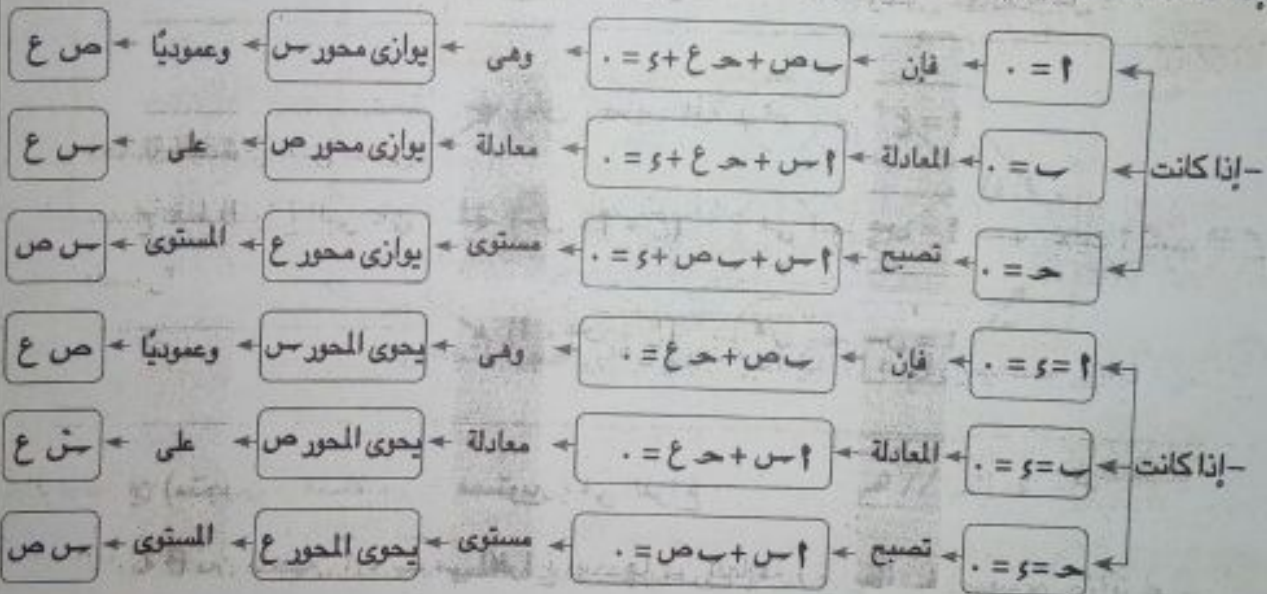 ا = ٠ فإن ب ص + حـ ع + ء = ٠ وهى يوازى محور س وعموديًا ص ع
– إذا كانت ب = ٠ المعادلة ا س + حـ ع + ء = ٠ معادلة يوازى محور ص على س ع
حـ = ٠ تصبح ا س + ب ص + ء = ٠ مستوى يوازى محور ع المستوى س ص
ا = ء = ٠ فإن ب ص + حـ ع = ٠ وهى يحوى المحور س وعموديًا ص ع
– إذا كانت ب = ء = ٠ المعادلة ا س + حـ ع = ٠ معادلة يحوى المحور ص على س ع
حـ = ء = ٠ تصبح ا س + ب ص = ٠ مستوى يحوى المحور ع المستوى س ص